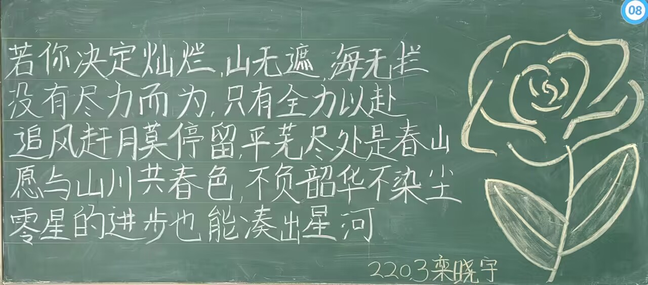 08
若你决定灿烂,山无遮,海无拦
没有尽力而为,只有全力以赴
追风赶月莫停留,平芜尽处是春山
愿与山川共春色,不负韶华不染尘
零星的进步也能凑出星河
2203栾晓宇